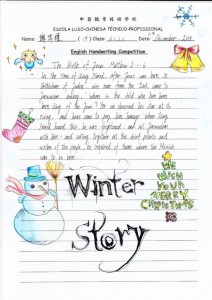 ESCOLA LUSO-CHINESA TÉCNICO-PROFESSIONAL
English Handwriting Competition
The Birth of Jesus Matthew 2:1-6
In the time of King Herod, after Jesus was born in
Bethlehem of Judea, wise men from the East came to
Jerusalem asking, where is the child who has been
born king of the Jews? For we observed his star at its
rising, and have come to pay him homage. When King
Herod heard this he was frightened and all Jerusalem
with him; and calling together all the chief priests and
scribes of the people, he inquired of them where the Messiah
was to be born.
WE
WISH
YOU
MERRY
CHRISTMAS
Winter
Story